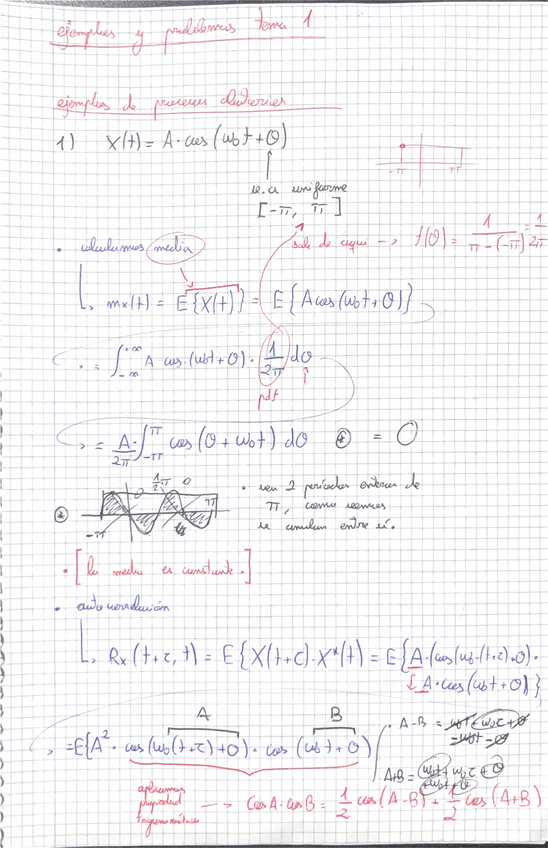 ejemplos y problemas tema 1
ejemplos de procesos aleatorios
1) X(t) = A·cos(ω₀t + θ)
-π π
v.a uniforme
[-π, π]
sale de aquí --> f(θ) = 1/(π-(-π)) = 1/2π
• calculamos media
↳ mx(t) = E{X(t)} = E{A cos(ω₀t + θ)}
= ∫_{-∞}^{+∞} A·cos·(ω₀t + θ)· 1/2π dθ
pdf
= A·/2π ∫_{-π}^{π} cos(θ + ω₀t) dθ ⊛ = 0
⊛ -π 0 1/2π 0 π
• 2 periodos enteros de
π, como vemos
se anulan entre sí.
• [la media es constante.]
• autocorrelación
↳ Rx·(t+τ, t) = E{X(t+τ)·X*(t) = E{A·(cos(ω₀·(t+τ)+θ)·
↓ A·cos(ω₀t + θ)}
A B
= E{A²·cos(ω₀(t+τ)+θ)·cos(ω₀t + θ)
• A-B = ω₀t + ω₀τ + θ
-ω₀t - θ
A+B = ω₀t + ω₀τ + θ
+ω₀t + θ
aplicamos
propiedad
trigonométrica
--> cosA·cosB = 1/2 cos(A-B) + 1/2 cos(A+B)